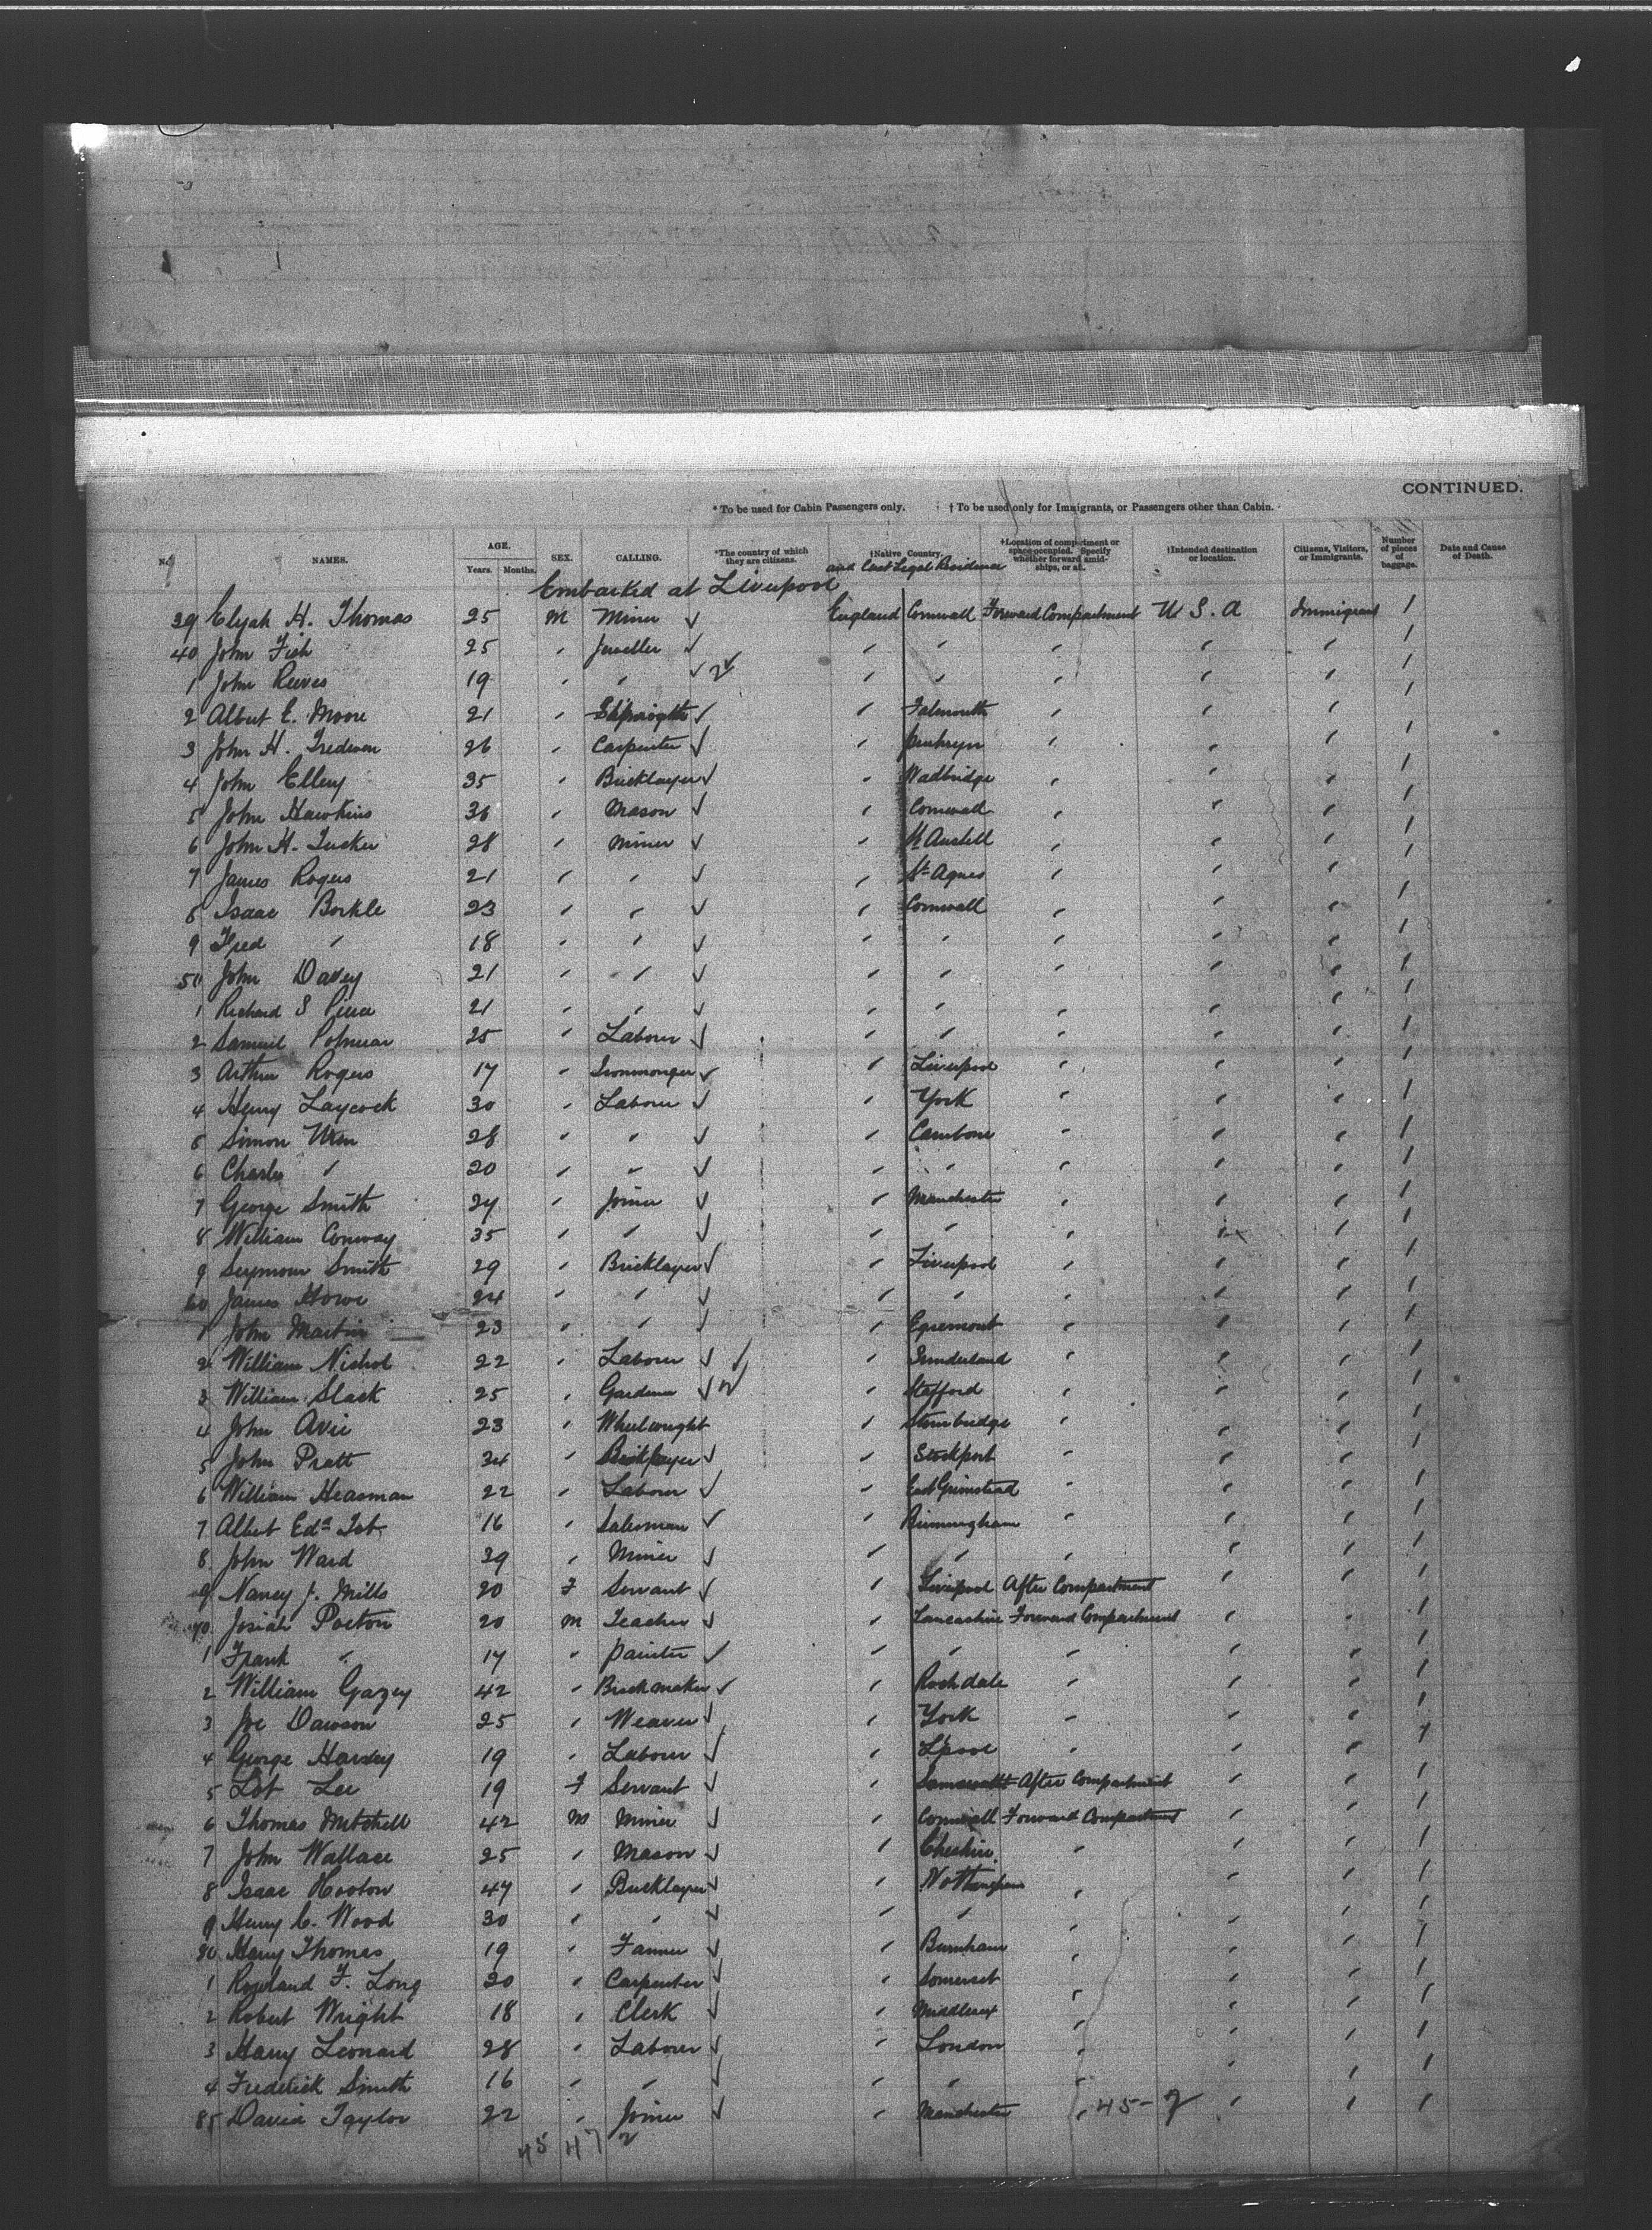 CONTINUED.
* To be used for Cabin Passengers only. † To be used only for Immigrants, or Passengers other than Cabin.
No. NAMES. AGE. Years. Months. SEX. CALLING. *The country of which they are citizens. †Native Country, and Last Legal Residence †Location of compartment or space occupied. Specify whether forward amidships, or aft. †Intended destination or location. Citizens, Visitors, or Immigrants. Number of pieces of baggage. Date and Cause of Death.
Embarked at Liverpool
39 Elijah H. Thomas 25 M Miner ✓ England Cornwall Forward Compartment U S A Immigrant 1
40 John Fish 25 " Jeweller ✓ " " " " " 1
1 John Reeves 19 " " ✓ 2✓ " " " " " 1
2 Albert E. Moore 21 " Shipwright ✓ " Falmouth " " " 1
3 John H. Tredwen 26 " Carpenter ✓ " Penhryn " " " 1
4 John Ellery 35 " Bricklayer ✓ " Wadbridge " " " 1
5 John Hawkins 36 " Mason ✓ " Cornwall " " " 1
6 John H. Tucker 28 " Miner ✓ " St Austell " " " 1
7 James Rogers 21 " " ✓ " St Agnes " " " 1
8 Isaac Borkle 23 " " ✓ " Cornwall " " " 1
9 Fred " 18 " " ✓ " " " " " 1
50 John Davey 21 " " ✓ " " " " " 1
1 Richard S Pierce 21 " " ✓ " " " " " 1
2 Samuel 25 " Laborer ✓ " " " " " 1
3 Arthur Rogers 17 " Ironmonger ✓ " Liverpool " " " 1
4 Henry Laycock 30 " Laborer ✓ " York " " " 1
5 Simon 28 " " ✓ " Camborne " " " 1
6 Charles " 20 " " ✓ " " " " " 1
7 George Smith 24 " Joiner ✓ " Manchester " " " 1
8 William Conway 35 " " ✓ " " " " " 1
9 Seymour Smith 29 " Bricklayer ✓ " Liverpool " " " 1
60 James Howe 24 " " ✓ " " " " " 1
1 John Martin 23 " " ✓ " Egremont " " " 1
2 William Nichol 22 " Laborer ✓ ✓ " Sunderland " " " 1
3 William Slack 25 " Gardener ✓ " Stafford " " " 1
4 John Avie 23 " Wheelwright " Stourbridge " " " 1
5 John Pratt 34 " Bricklayer ✓ " Stockport " " " 1
6 William Heasman 22 " Laborer ✓ " East Grimstead " " " 1
7 Albert Edd 16 " Salesman ✓ " Birmingham " " " 1
8 John Ward 39 " Miner ✓ " " " " " 1
9 Nancy J. Mills 20 F Servant ✓ " Liverpool After Compartment " " 1
70 Josiah Poeton 20 M Teacher ✓ " Lancashire Forward Compartment " " 1
1 Frank " 17 " Painter ✓ " " " " " 1
2 William Gazey 42 " Brickmaker ✓ " Rochdale " " " 1
3 Joe Dawson 25 " Weaver ✓ " York " " " 1
4 George Harvey 19 " Laborer ✓ " L'pool " " " 1
5 Lot Lee 19 F Servant ✓ " After Compartment " " 1
6 Thomas Mitchell 42 M Miner ✓ " Cornwall Forward Compartment " " 1
7 John Wallace 25 " Mason ✓ " Cheshire " " " 1
8 Isaac Hooton 47 " Bricklayer ✓ " Nottingham " " " 1
9 Henry C. Wood 30 " " ✓ " " " " " 1
80 Harry Thomas 19 " Farmer ✓ " Burnham " " " 1
1 Rowland F. Long 20 " Carpenter ✓ " Somerset " " " 1
2 Robert Wright 18 " Clerk ✓ " Middlesex " " " 1
3 Harry Leonard 28 " Laborer ✓ " London " " " 1
4 Frederick Smith 16 " " ✓ " " " " " 1
85 David Taylor 22 " Joiner ✓ " Manchester " 45-2 " " 1
45 47 2